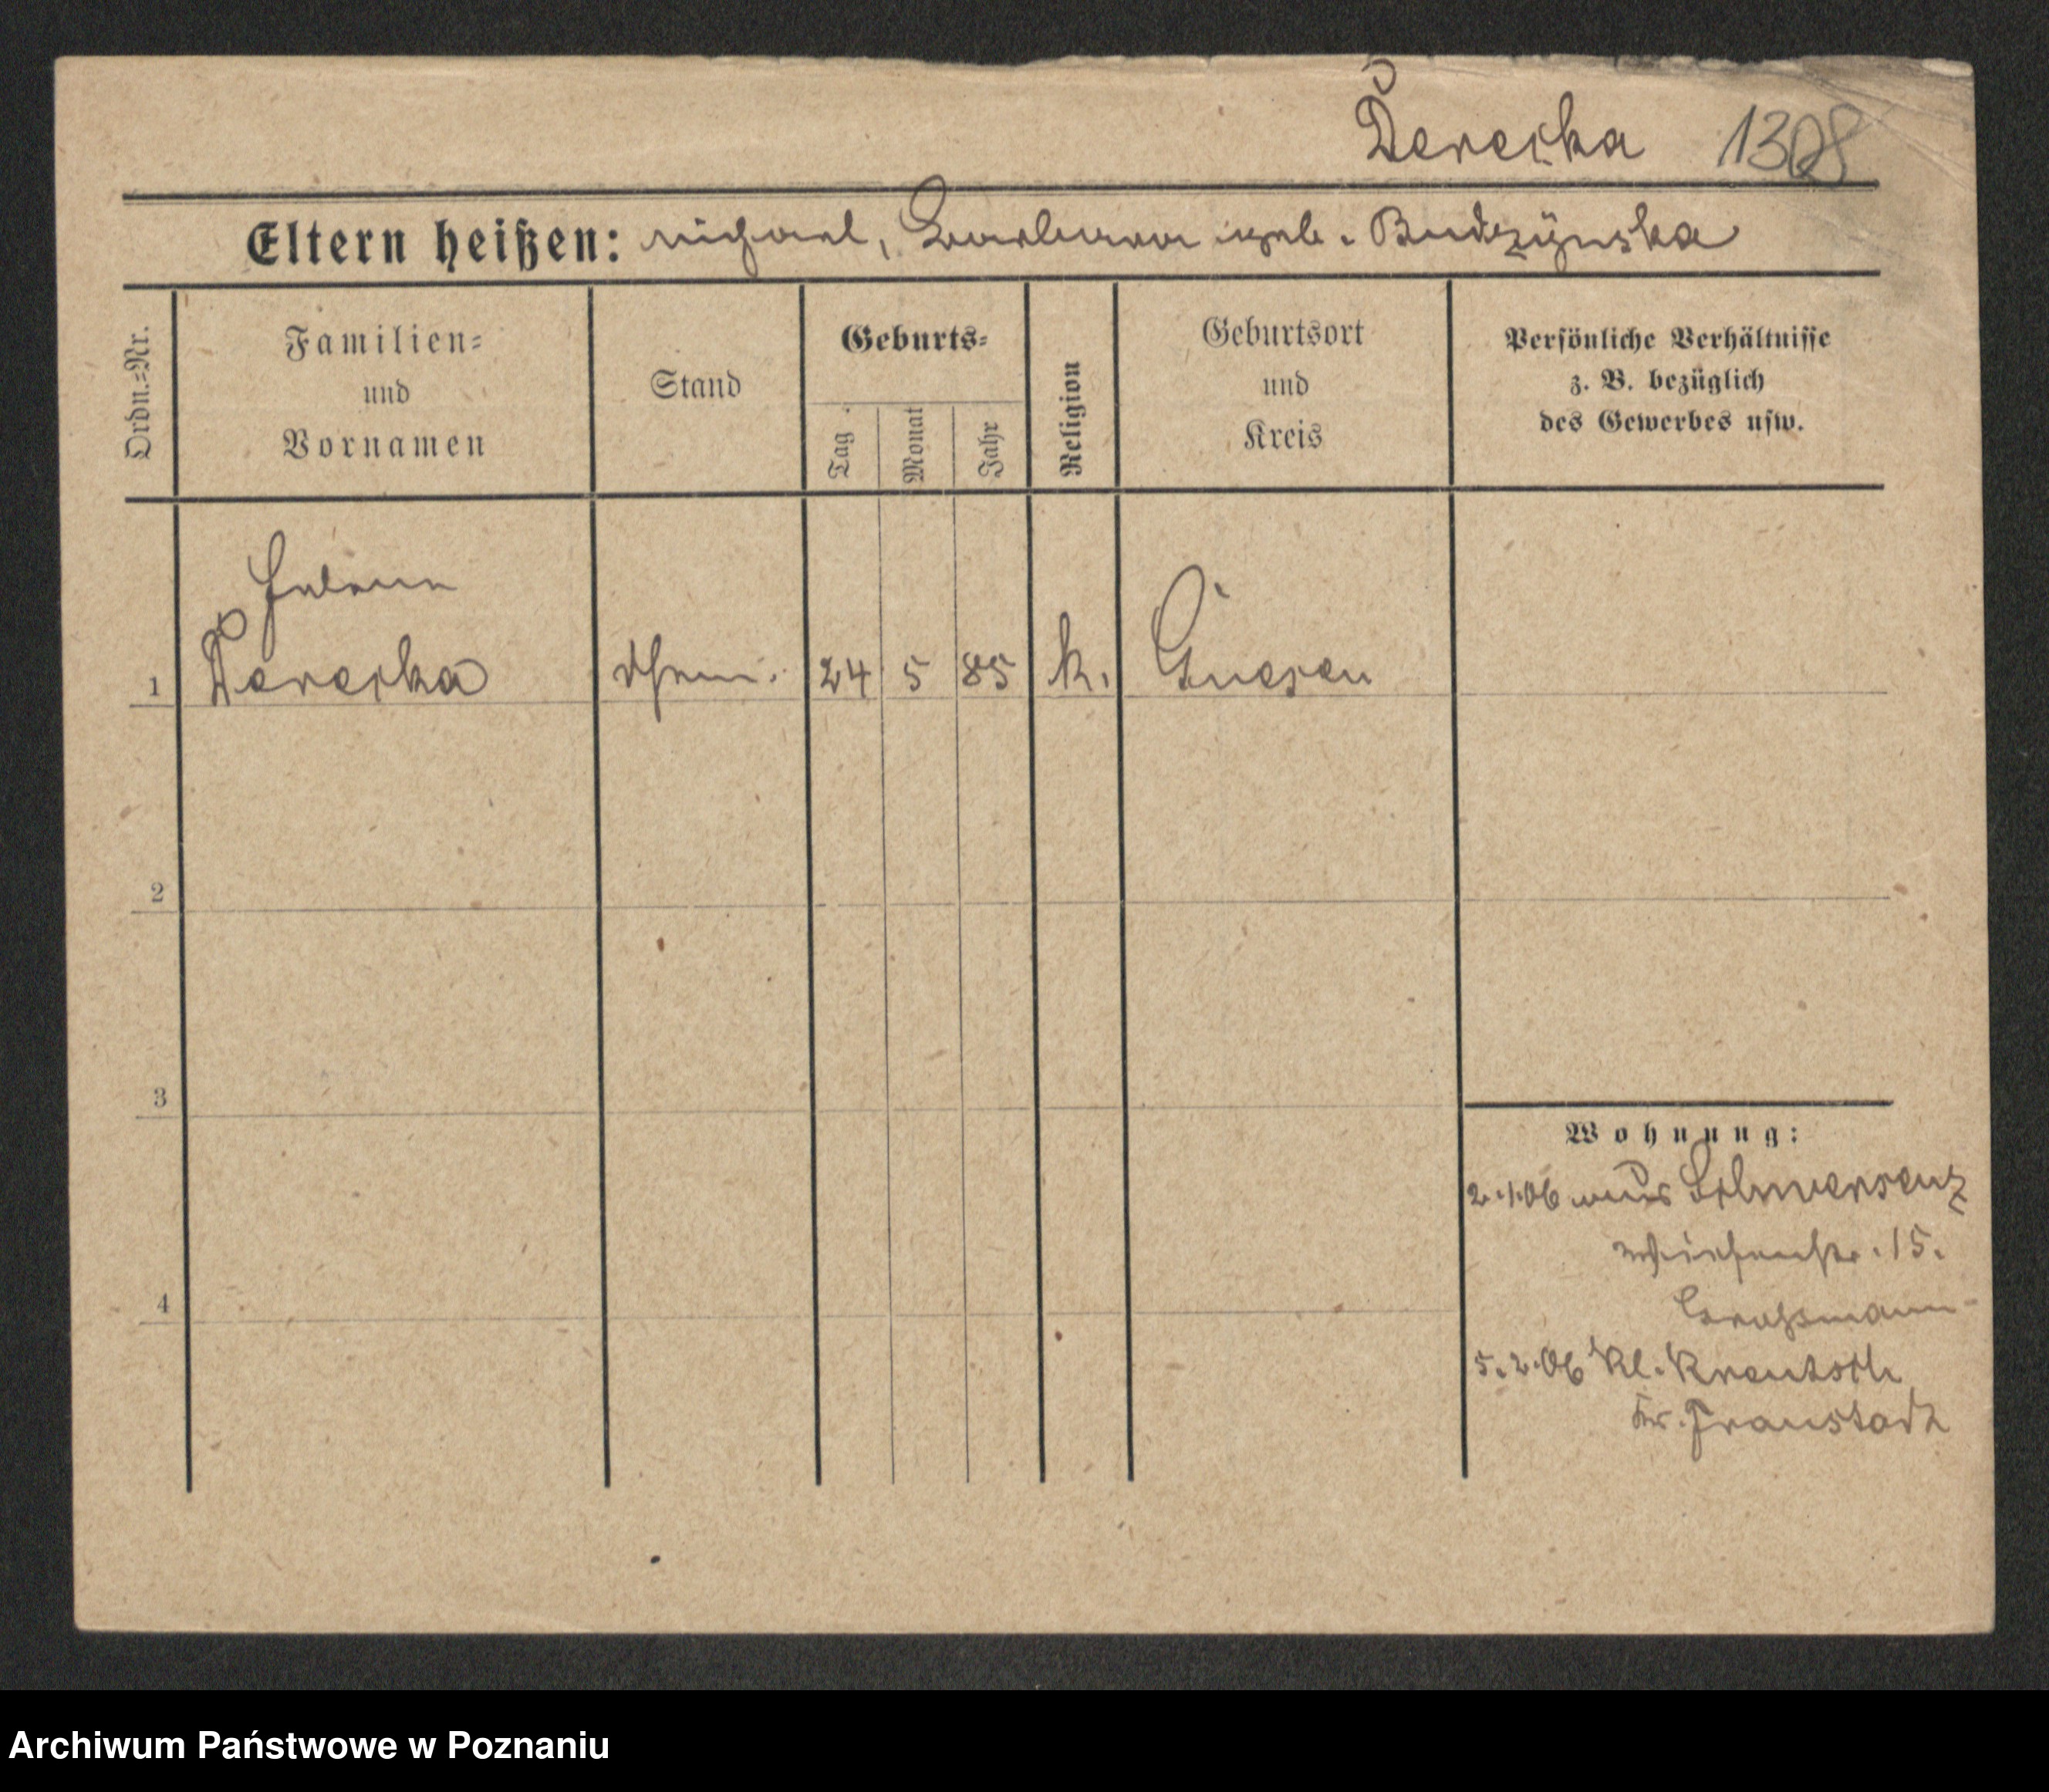 Derecka 1308
Eltern heißen: Michael, Barbara geb. Budzÿnska
Ordn.=Nr.
Familien=
und
Vornamen
Stand
Geburts=
Tag
Monat
Jahr
Religion
Geburtsort
und
Kreis
Persönliche Verhältnisse
z. B. bezüglich
des Gewerbes usw.
Helene
1 Derecka 24 5 85 k. Gnesen
2
3
4
Wohnung:
2.1.06 aus Schwersenz
15.
Großmann
5.2.06 Kl. Kreutsch
Kr. Fraustadt
Archiwum Państwowe w Poznaniu